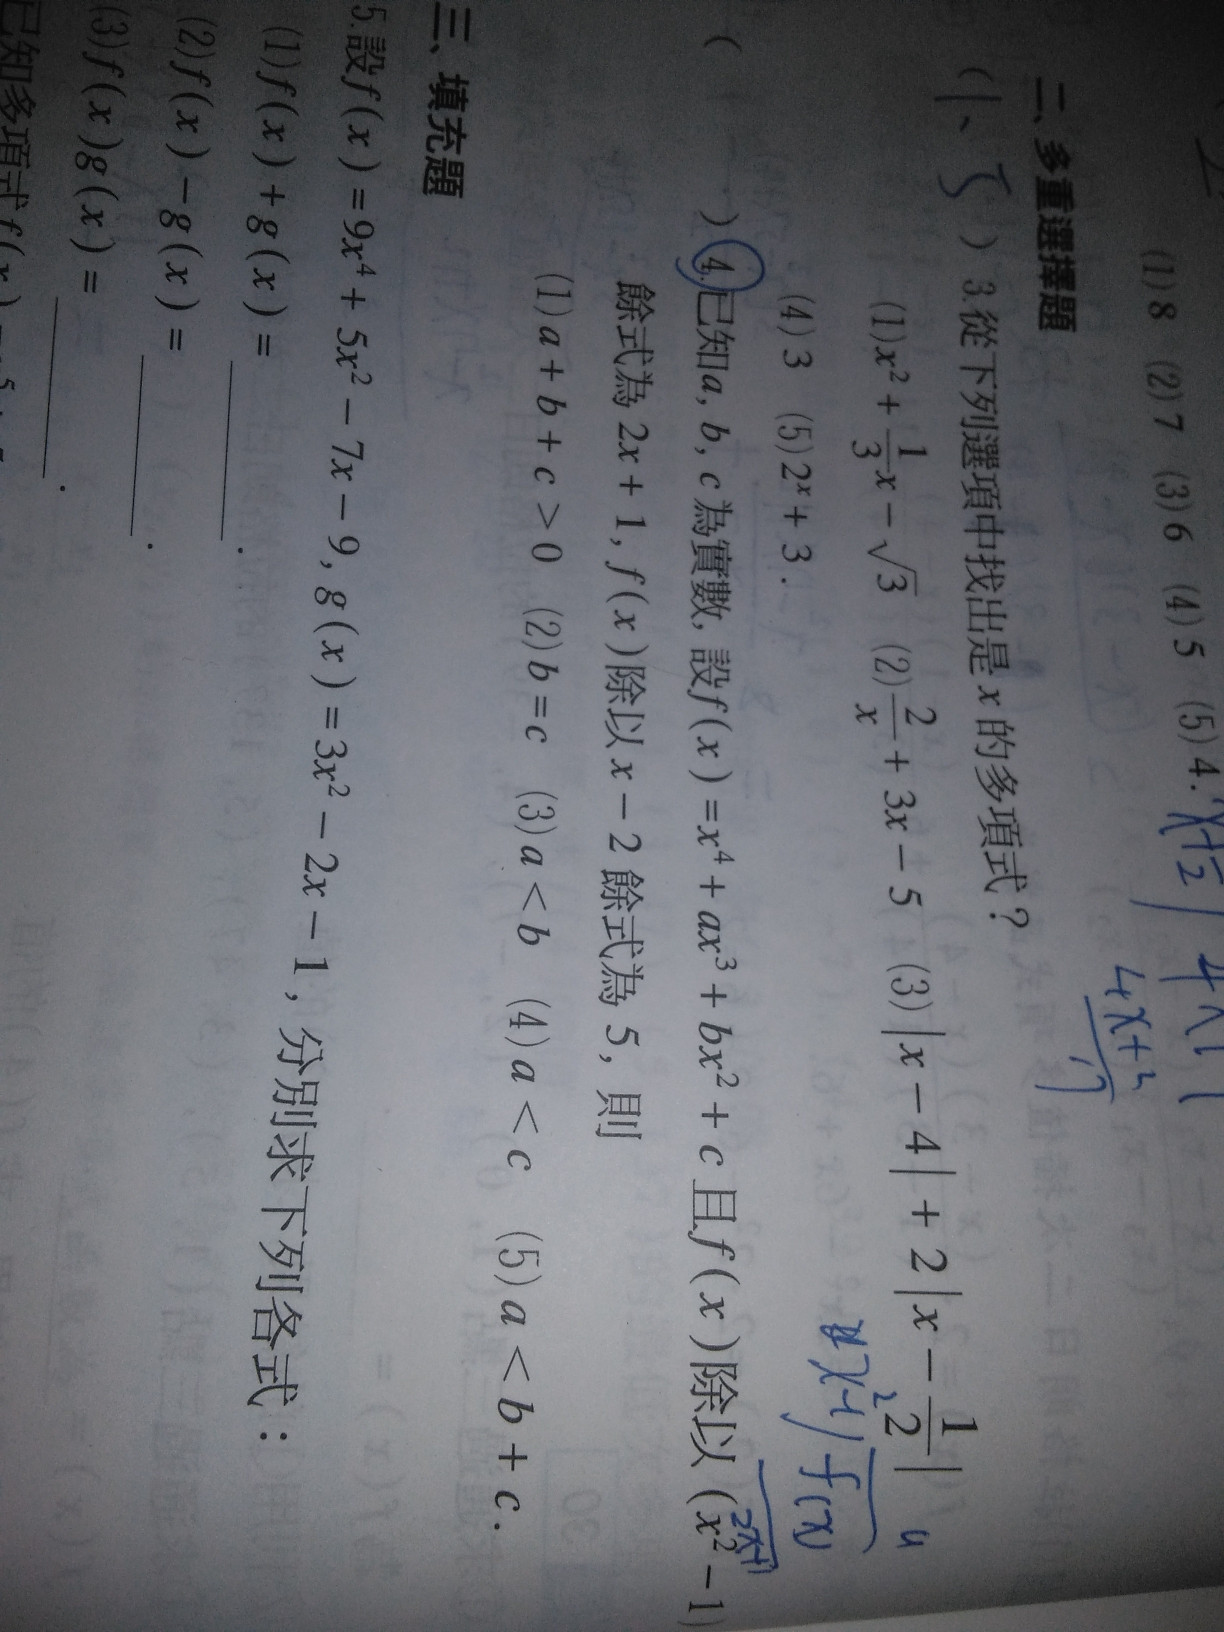 (1) 8 (2) 7 (3) 6 (4) 5 (5) 4.
二、多重選擇題
(1、5) 3.從下列選項中找出是 x 的多項式?
(1) x² + 1/3 x − √3 (2) 2/x + 3x − 5 (3) |x − 4| + 2|x − 1/2|
(4) 3 (5) 2ˣ + 3.
( ) 4.已知a, b, c 為實數, 設f(x) = x⁴ + ax³ + bx² + c 且f(x)除以 (x² − 1)
餘式為 2x + 1, f(x)除以 x − 2 餘式為 5, 則
(1) a + b + c > 0 (2) b = c (3) a < b (4) a < c (5) a < b + c.
f(x)
2x+1
三、填充題
5.設f(x) = 9x⁴ + 5x² − 7x − 9, g(x) = 3x² − 2x − 1, 分別求下列各式:
(1) f(x) + g(x) = ______.
(2) f(x) − g(x) = ______.
(3) f(x)g(x) = ______.
已知多項式 f(x)